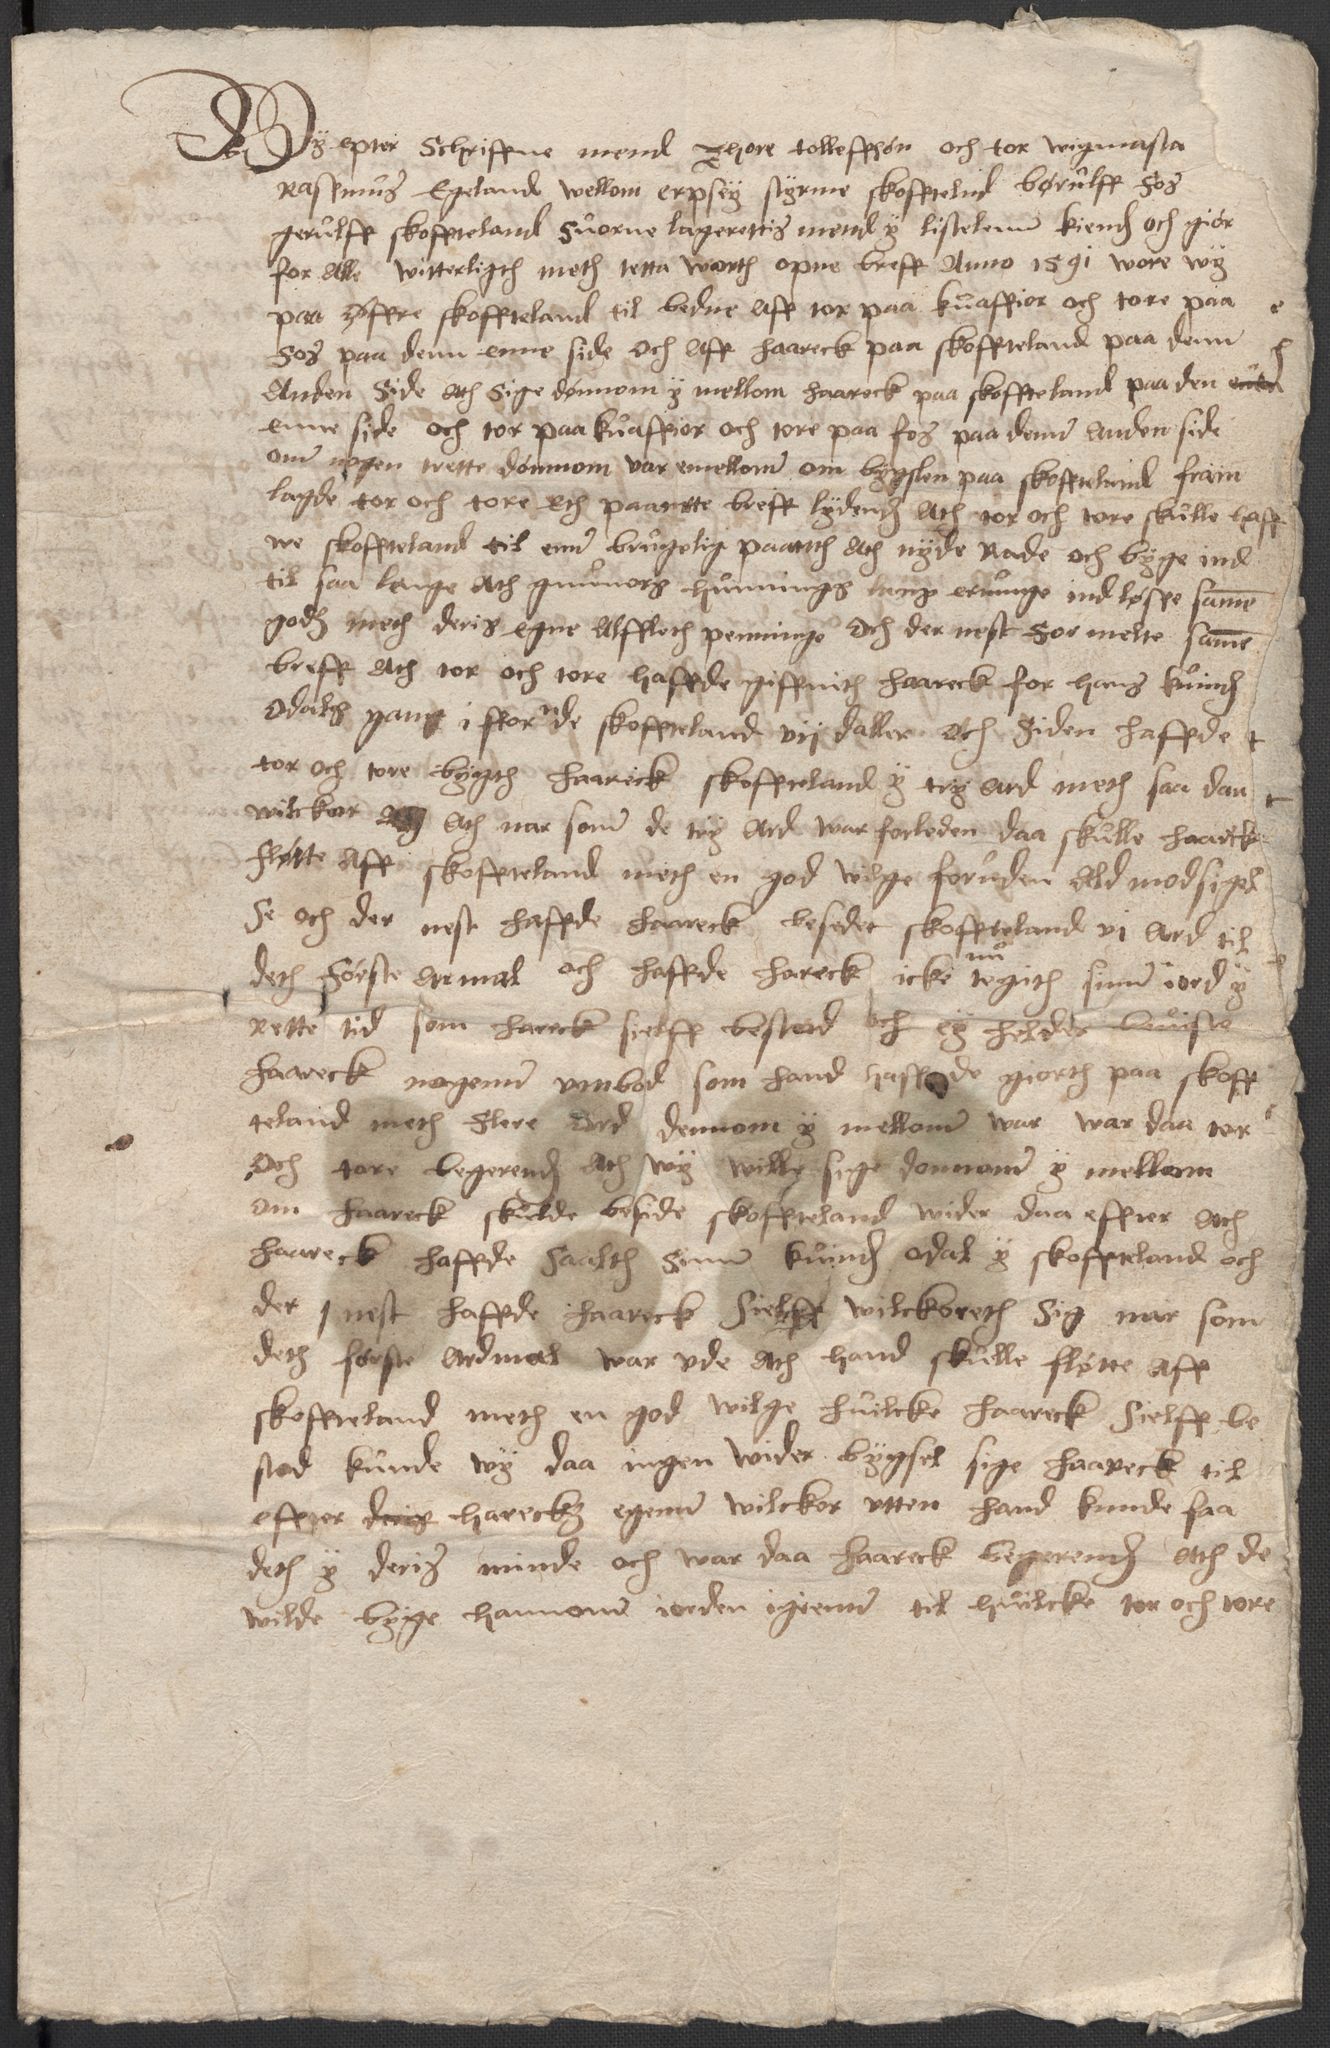 Wÿ epter Schriffne mend Thore tolleffsøn och tor wigmasta
Rasmus Egeland wellom erpseÿ stÿrme skofftelnd børulff Fos
gerulff skoffteland Suorne lagerettis mend ÿ listelenn kiendis och giør
for alle witterligth meth tetta worth opne breff Anno 1591 wore wÿ
paa øffre skoffteland til bedne aff tor paa kuaffior och tore paa
Fos paa denn enne side och aff haareck paa skoffteland paa denn
anden side ath sige dønnom ÿ mellom haareck paa skoffteland paa den
enne side och tor paa kuaffior och tore paa fos paa denn anden side
om nogen trette dønnom var emellom om bÿgslen paa skoffteland fram
lagde tor och tore eth paantte breff lÿdendis ath tor och tore skulle haff
we skoffteland til enn brugelig paanth ath nÿde Rade och bÿge ind
til saa lenge ath gunnors hunnings eruinge ind løsse samme
gods meth deris egne penninge och der nest For melte samme
breff ath tor och tore haffde giffuith haareck for hans kuindis
odals gang i ffornde skoffteland vij daller och siden haffde
tor och tore bÿgth haareck skoffteland ÿ trÿ ard meth saa dan
wilckor ath nar som de trÿ ard war forleden daa skulle haareck
fløtte aff skoffteland meth en god wilge foruden ald modsigel
se och der nest haffde haareck besedet skoffteland vi ard til
deth Første armal och haffde hareck icke nu tegith sinn iord ÿ
rette tid som hareck sielff bestod och eÿ helder beuiste
haareck nogenn ombod som hand haffde giorth paa skoff
teland meth flere ord dennom ÿ mellom war war daa tor
och tore begerendis ath wÿ wille sige donnom ÿ mellom
om haareck skulde beside skoffteland wider daa effter ath
haareck haffde saalth sinn kuindis odal ÿ skoffteland och
der nest haffde haareck sielff wilckoreth sig nar som
deth første ardmal war vde ath hand skulle fløtte aff
skoffteland meth en god wilge huilcke haareck sielff be
stod kunde wÿ daa ingen wider bÿgsel sige haareck til
effter deris harecks egenn wilckor vtten hand kunde faa
deth ÿ deris minde och war daa haareck begerendis ath de
wilde bÿge hannom iorden igienn til huilcke tor och tore